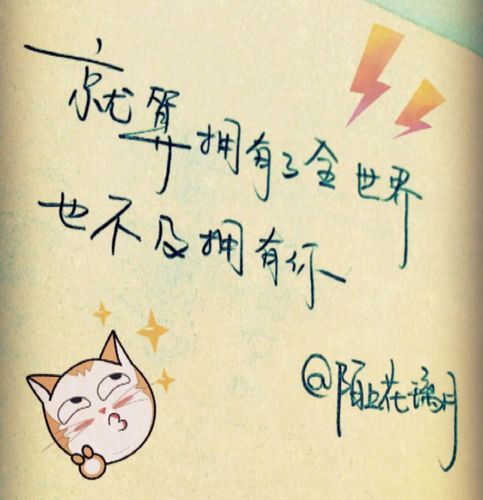 就算拥有了全世界
也不及拥有你
@陌上花璃月